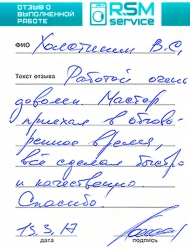 ОТЗЫВ О
ВЫПОЛНЕННОЙ
РАБОТЕ
RSM
service
ФИО Холотилин В.С,
Текст отзыва Работой очень
доволен. Мастер
приехал в обгово-
ренное время,
всё сделал быстро
и качественно.
Спасибо.
13.3.17
дата подпись